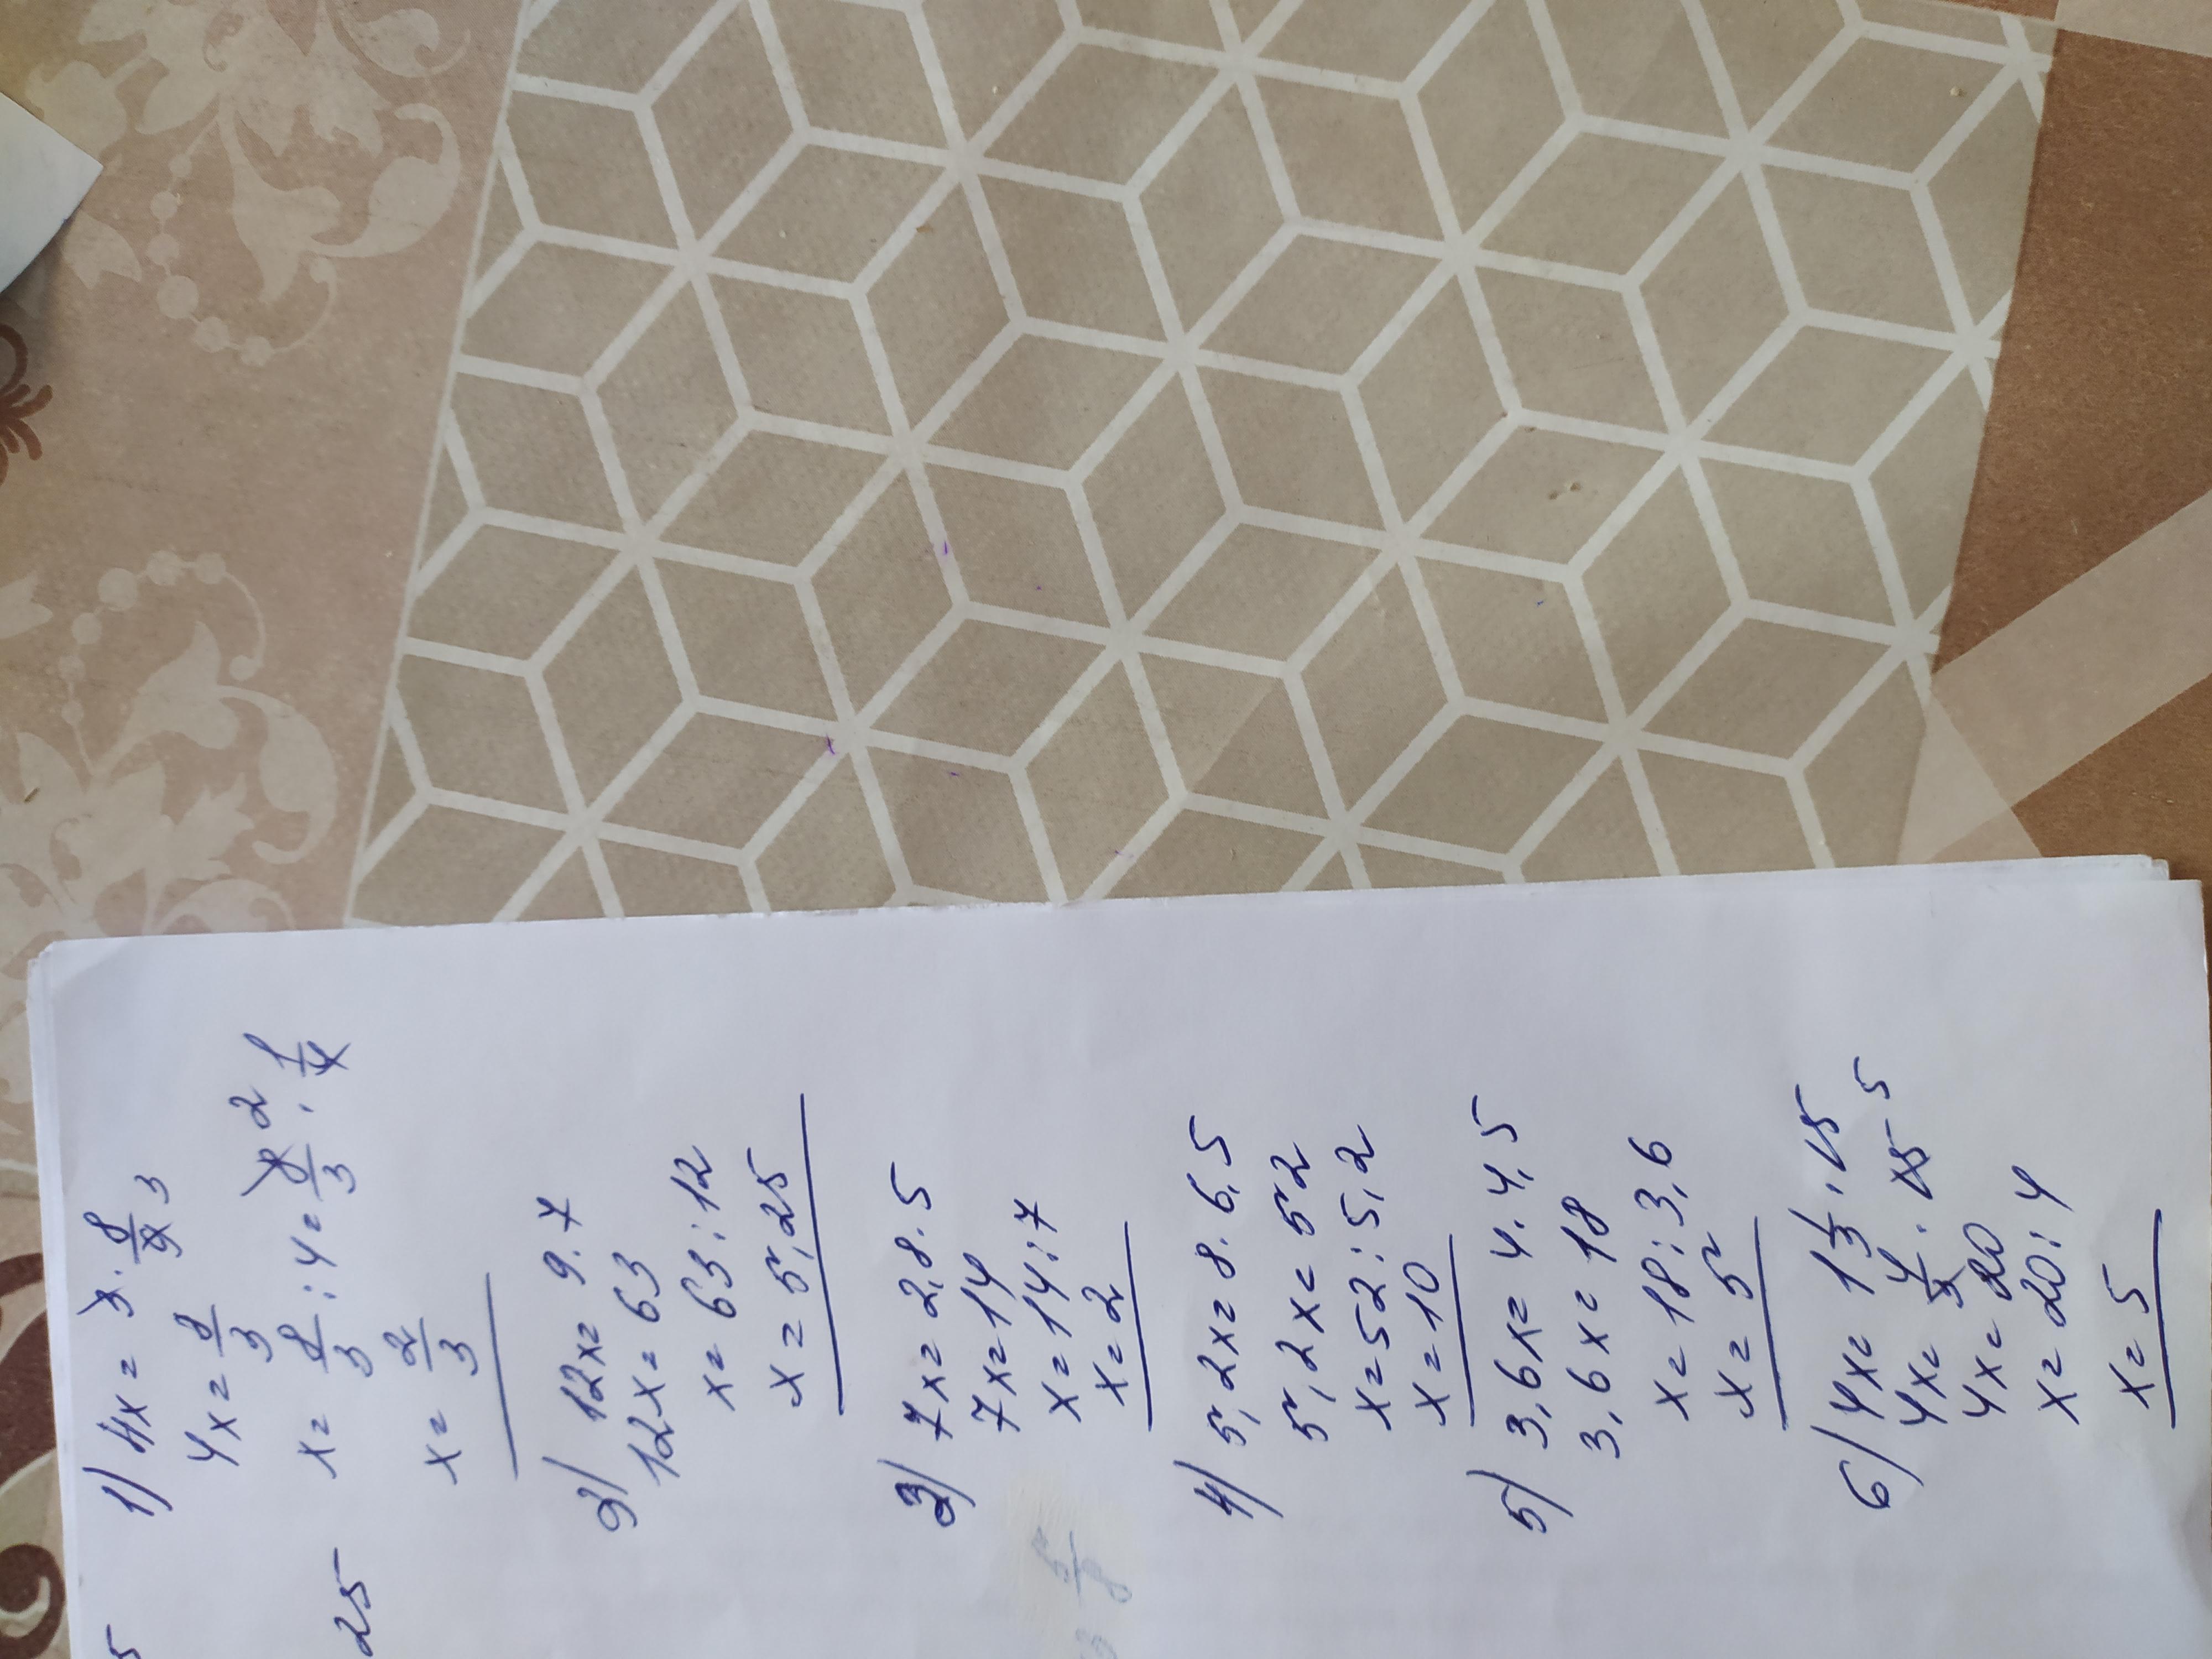 1) 4x = 3 · 8/9 3
4x = 8/3
x = 8/3 : 4 = 8/3 · 1/4 2
x = 2/3
2) 12x = 9 · 7
12x = 63
x = 63 : 12
x = 5,25
3) 7x = 2,8 · 5
7x = 14
x = 14 : 7
x = 2
4) 5,2x = 8 · 6,5
5,2x = 52
x = 52 : 5,2
x = 10
5) 3,6x = 4 · 4,5
3,6x = 18
x = 18 : 3,6
x = 5
6) 4x = 1 1/3 · 15
4x = 4/3 · 15 5
4x = 20
x = 20 : 4
x = 5
5
25